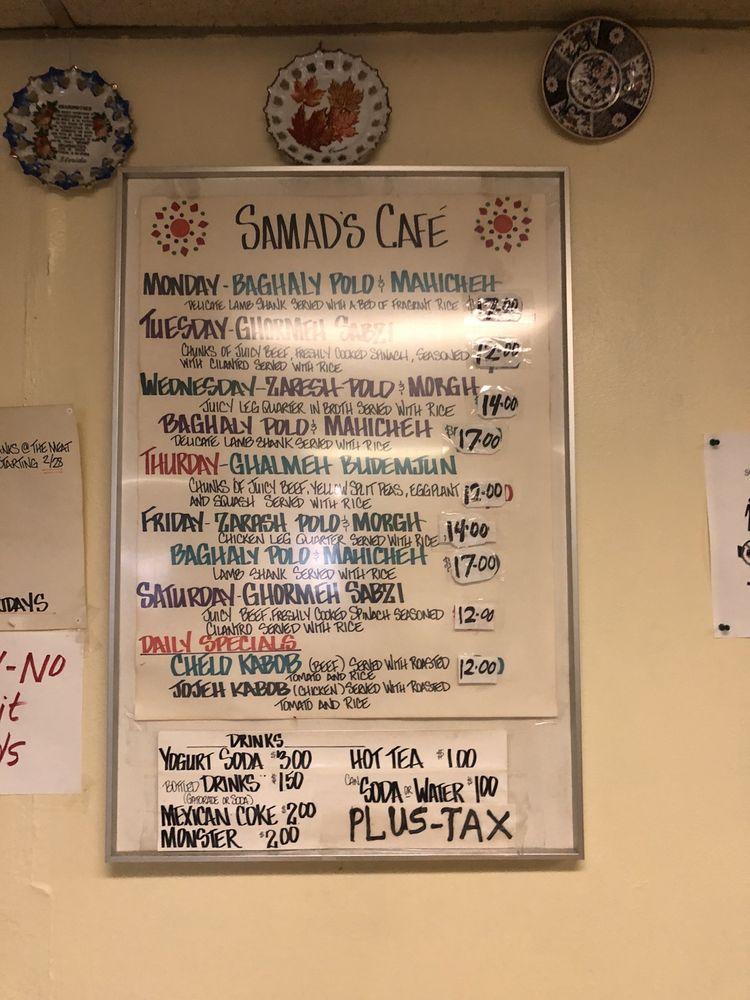 SAMAD'S CAFÉ
MONDAY - BAGHALY POLO & MAHICHEH
DELICATE LAMB SHANK SERVED WITH A BED OF FRAGRANT RICE
TUESDAY - GHORMEH SABZI
CHUNKS OF JUICY BEEF, FRESHLY COOKED SPINACH, SEASONED 12.00
WITH CILANTRO SERVED WITH RICE
WEDNESDAY - ZARESH POLO & MORGH
JUICY LEG QUARTER IN BROTH SERVED WITH RICE 14.00
BAGHALY POLO & MAHICHEH 17.00
DELICATE LAMB SHANK SERVED WITH RICE
THURDAY - GHALMEH BUDEMJUN
CHUNKS OF JUICY BEEF, YELLOW SPLIT PEAS, EGGPLANT 12.00
AND SQUASH SERVED WITH RICE
FRIDAY - ZARASH POLO & MORGH 14.00
CHICKEN LEG QUARTER SERVED WITH RICE
BAGHALY POLO & MAHICHEH $17.00
LAMB SHANK SERVED WITH RICE
SATURDAY - GHORMEH SABZI
JUICY BEEF, FRESHLY COOKED SPINACH SEASONED 12.00
CILANTRO SERVED WITH RICE
DAILY SPECIALS
CHELO KABOB (BEEF) SERVED WITH ROASTED 12.00
TOMATO AND RICE
JOJEH KABOB (CHICKEN) SERVED WITH ROASTED
TOMATO AND RICE
DRINKS
YOGURT SODA $3.00
BOTTLED DRINKS $1.50
(GATORADE OR SODA)
MEXICAN COKE $2.00
MONSTER $2.00
HOT TEA $1.00
CAN SODA OR WATER $1.00
PLUS-TAX
NKS @ THE MEAT
TARTING 2/28
IDAYS
Y-NO
it
Florida